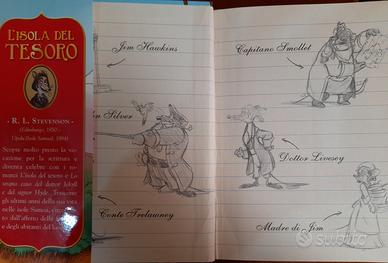 L'ISOLA DEL
TESORO
• R. L. STEVENSON •
(Edimburgo, 1850 -
Upolu Isole Samoa, 1894)
Scopre molto presto la vo-
cazione per la scrittura e
diventa celebre con i ro-
manzi L'isola del tesoro e Lo
strano caso del dottor Jekyll
e del signor Hyde. Trascorre
gli ultimi anni della sua vita
nelle isole Samoa,
dall'affetto
e degli abitanti del
Jim Hawkins
Silver
Conte Trelawney
Capitano Smollet
Dottor Livesey
Madre di Jim
subito